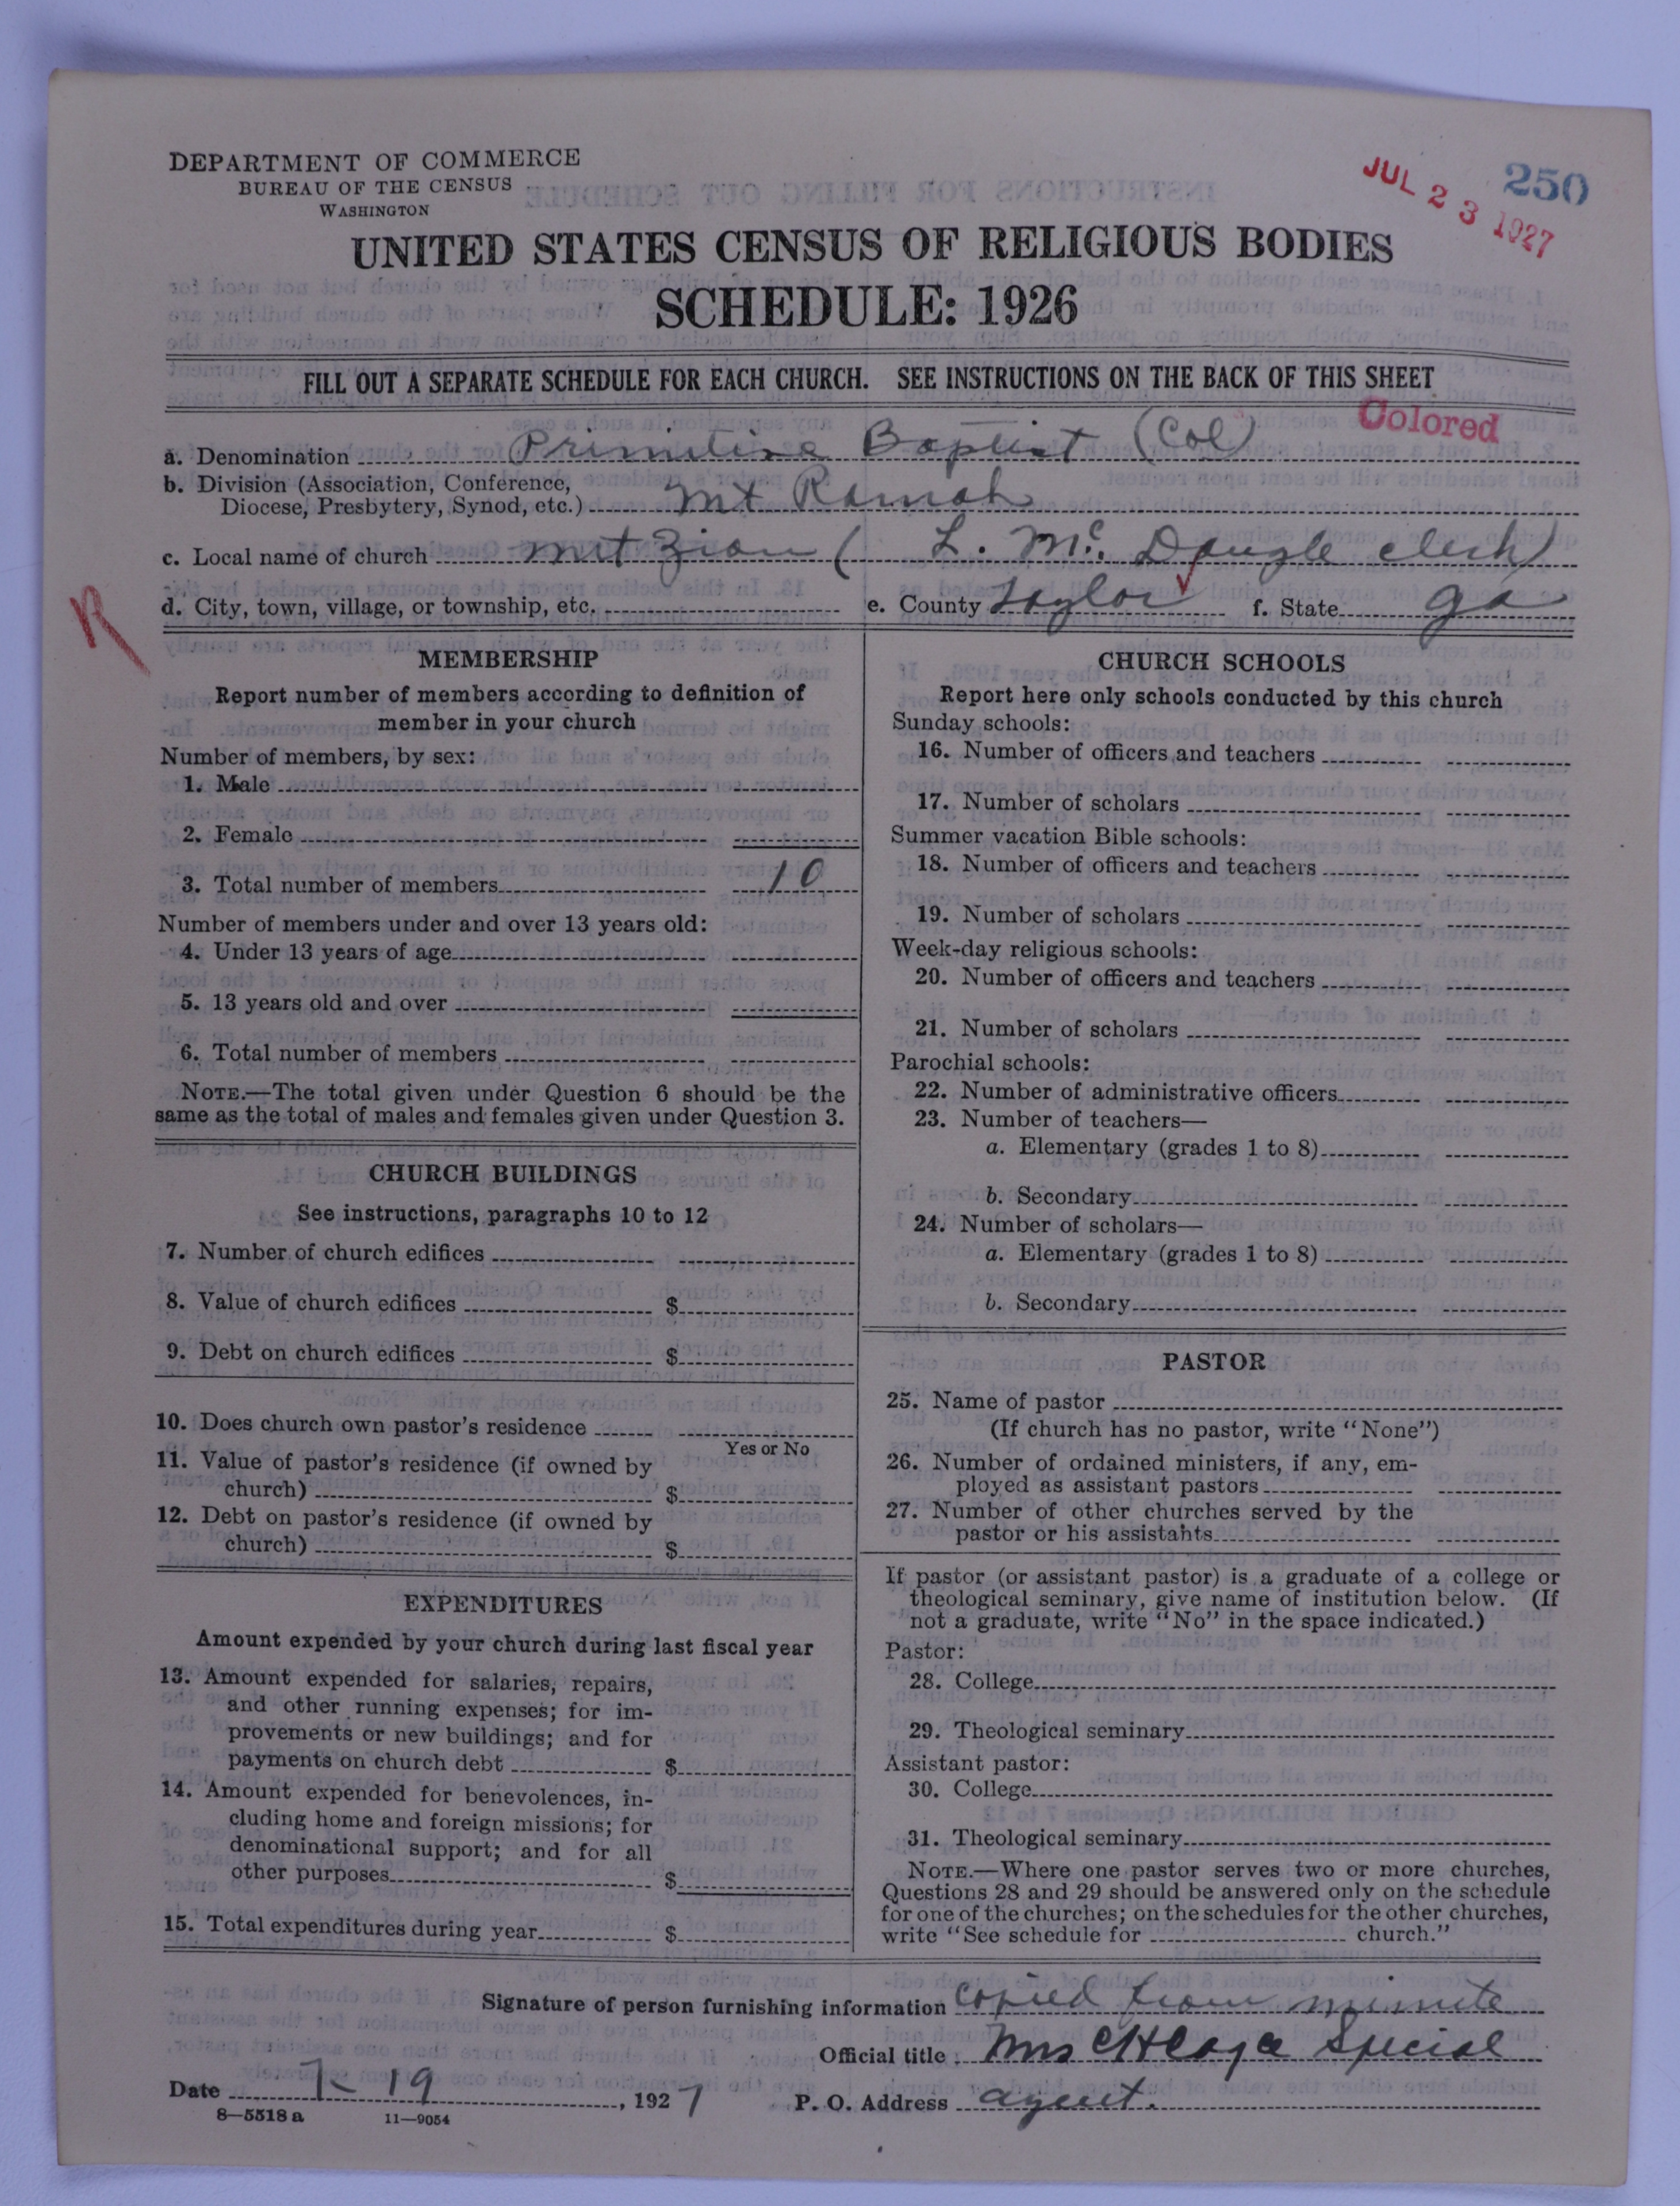 DEPARTMENT OF COMMERCE
BUREAU OF THE CENSUS
WASHINGTON
JUL 23 1927
250
UNITED STATES CENSUS OF RELIGIOUS BODIES
SCHEDULE: 1926
FILL OUT A SEPARATE SCHEDULE FOR EACH CHURCH. SEE INSTRUCTIONS ON THE BACK OF THIS SHEET
Colored
a. Denomination Primitive Baptist (Col)
b. Division (Association, Conference,
Diocese, Presbytery, Synod, etc.) Mt Ramah
c. Local name of church Mt Zion ( L. Mc. Dougle clerk)
R
d. City, town, village, or township, etc. e. County Taylor f. State Ga
MEMBERSHIP
Report number of members according to definition of
member in your church
Number of members, by sex:
1. Male
2. Female
3. Total number of members 10
Number of members under and over 13 years old:
4. Under 13 years of age
5. 13 years old and over
6. Total number of members
NOTE.—The total given under Question 6 should be the
same as the total of males and females given under Question 3.
CHURCH BUILDINGS
See instructions, paragraphs 10 to 12
7. Number of church edifices
8. Value of church edifices $
9. Debt on church edifices $
10. Does church own pastor's residence
Yes or No
11. Value of pastor's residence (if owned by
church) $
12. Debt on pastor's residence (if owned by
church) $
EXPENDITURES
Amount expended by your church during last fiscal year
13. Amount expended for salaries, repairs,
and other running expenses; for im-
provements or new buildings; and for
payments on church debt $
14. Amount expended for benevolences, in-
cluding home and foreign missions; for
denominational support; and for all
other purposes $
15. Total expenditures during year $
CHURCH SCHOOLS
Report here only schools conducted by this church
Sunday schools:
16. Number of officers and teachers
17. Number of scholars
Summer vacation Bible schools:
18. Number of officers and teachers
19. Number of scholars
Week-day religious schools:
20. Number of officers and teachers
21. Number of scholars
Parochial schools:
22. Number of administrative officers
23. Number of teachers—
a. Elementary (grades 1 to 8)
b. Secondary
24. Number of scholars—
a. Elementary (grades 1 to 8)
b. Secondary
PASTOR
25. Name of pastor
(If church has no pastor, write "None")
26. Number of ordained ministers, if any, em-
ployed as assistant pastors
27. Number of other churches served by the
pastor or his assistants
If pastor (or assistant pastor) is a graduate of a college or
theological seminary, give name of institution below. (If
not a graduate, write "No" in the space indicated.)
Pastor:
28. College
29. Theological seminary
Assistant pastor:
30. College
31. Theological seminary
NOTE.—Where one pastor serves two or more churches,
Questions 28 and 29 should be answered only on the schedule
for one of the churches; on the schedules for the other churches,
write "See schedule for church."
Signature of person furnishing information copied from minute
Official title Mrs Special
Date 7-19, 1927 P. O. Address agent.
8—5518 a 11—9054